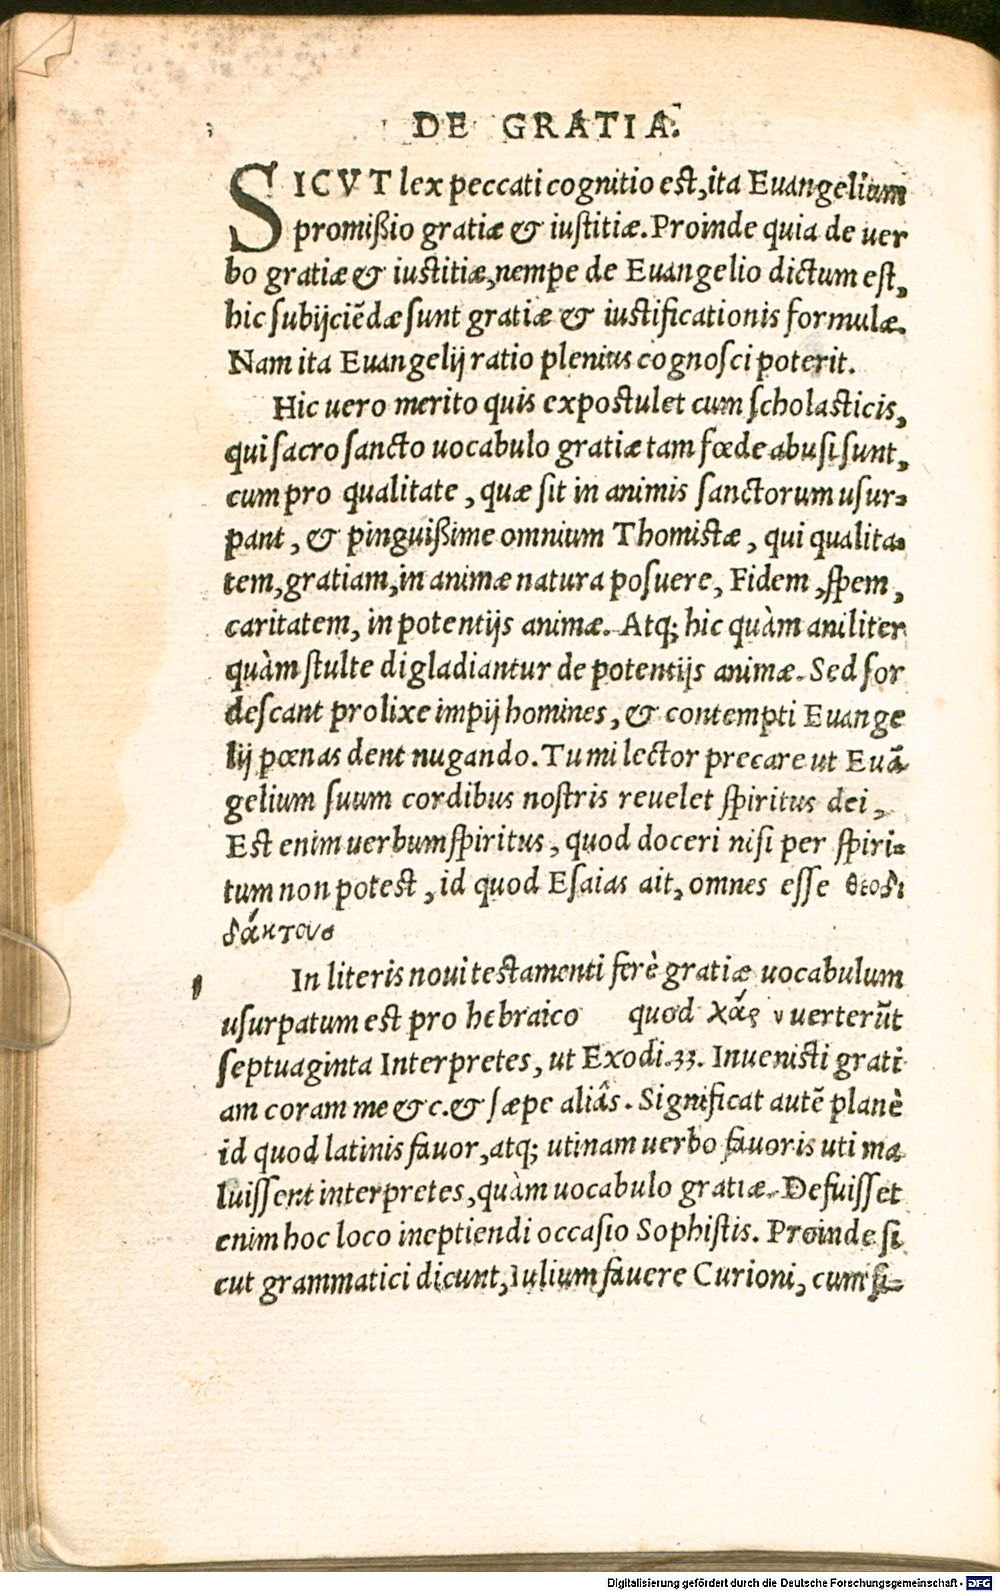 DE GRATIA.
SICVT lex peccati cognitio est, ita Euangelium
promißio gratiæ & iustitiæ. Proinde quia de uer
bo gratiæ & iustitiæ, nempe de Euangelio dictum est,
hic subijciẽdæ sunt gratiæ & iustificationis formulæ.
Nam ita Euangelij ratio plenius cognosci poterit.
Hic uero merito quis expostulet cum scholasticis,
qui sacro sancto uocabulo gratiæ tam fœde abusi sunt,
cum pro qualitate, quæ sit in animis sanctorum usur-
pant, & pinguißime omnium Thomistæ, qui qualita-
tem, gratiam, in animæ natura posuere, Fidem, spem,
caritatem, in potentijs animæ. Atq; hic quàm aniliter
quàm stulte digladiantur de potentijs animæ. Sed sor
descant prolixe impij homines, & contempti Euange
lij pœnas dent nugando. Tu mi lector precare ut Euã-
gelium suum cordibus nostris reuelet spiritus dei,
Est enim uerbum spiritus, quod doceri nisi per spiri-
tum non potest, id quod Esaias ait, omnes esse θεοδι
δάκτους
In literis noui testamenti ferè gratiæ uocabulum
usurpatum est pro hebraico quod χάς ν uerterũt
septuaginta Interpretes, ut Exodi.33. Inuenisti grati
am coram me &c. & sæpe aliâs. Significat autẽ planè
id quod latinis fauor, atq; utinam uerbo fauoris uti ma
luissent interpretes, quàm uocabulo gratiæ. Defuisset
enim hoc loco ineptiendi occasio Sophistis. Proinde si
cut grammatici dicunt, Iulium fauere Curioni, cum si-
Digitalisierung gefördert durch die Deutsche Forschungsgemeinschaft - DFG